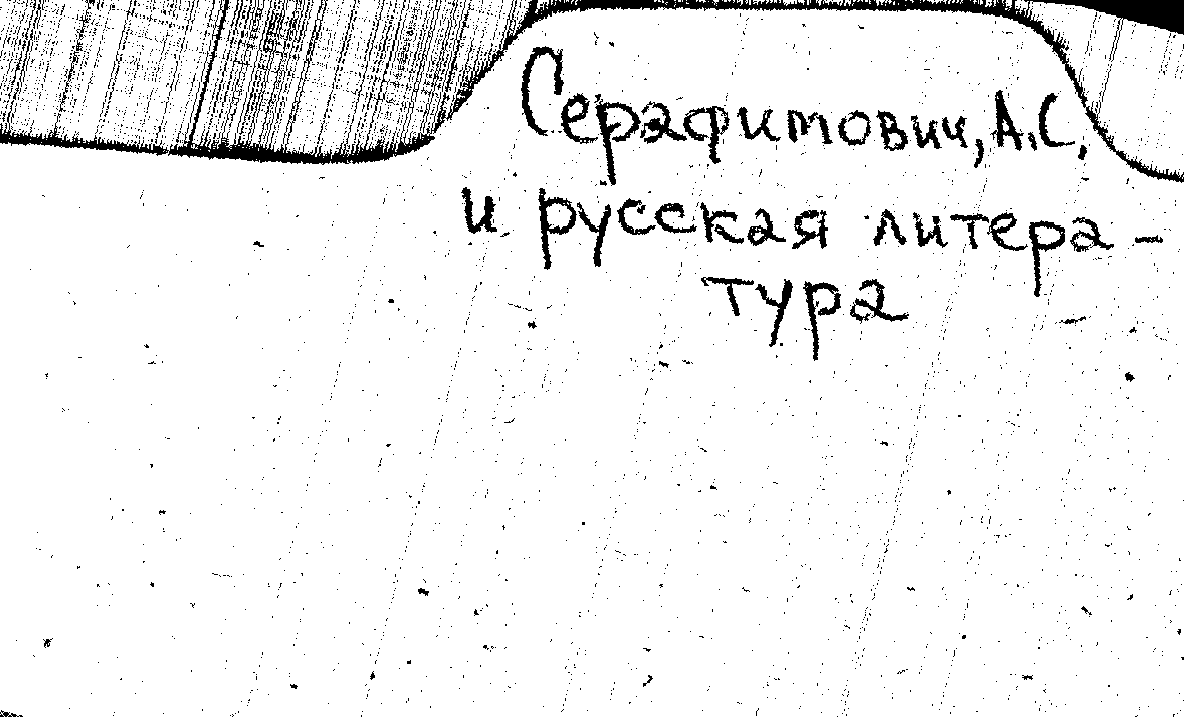 Серафимович, А.С.
и русская литера-
тура